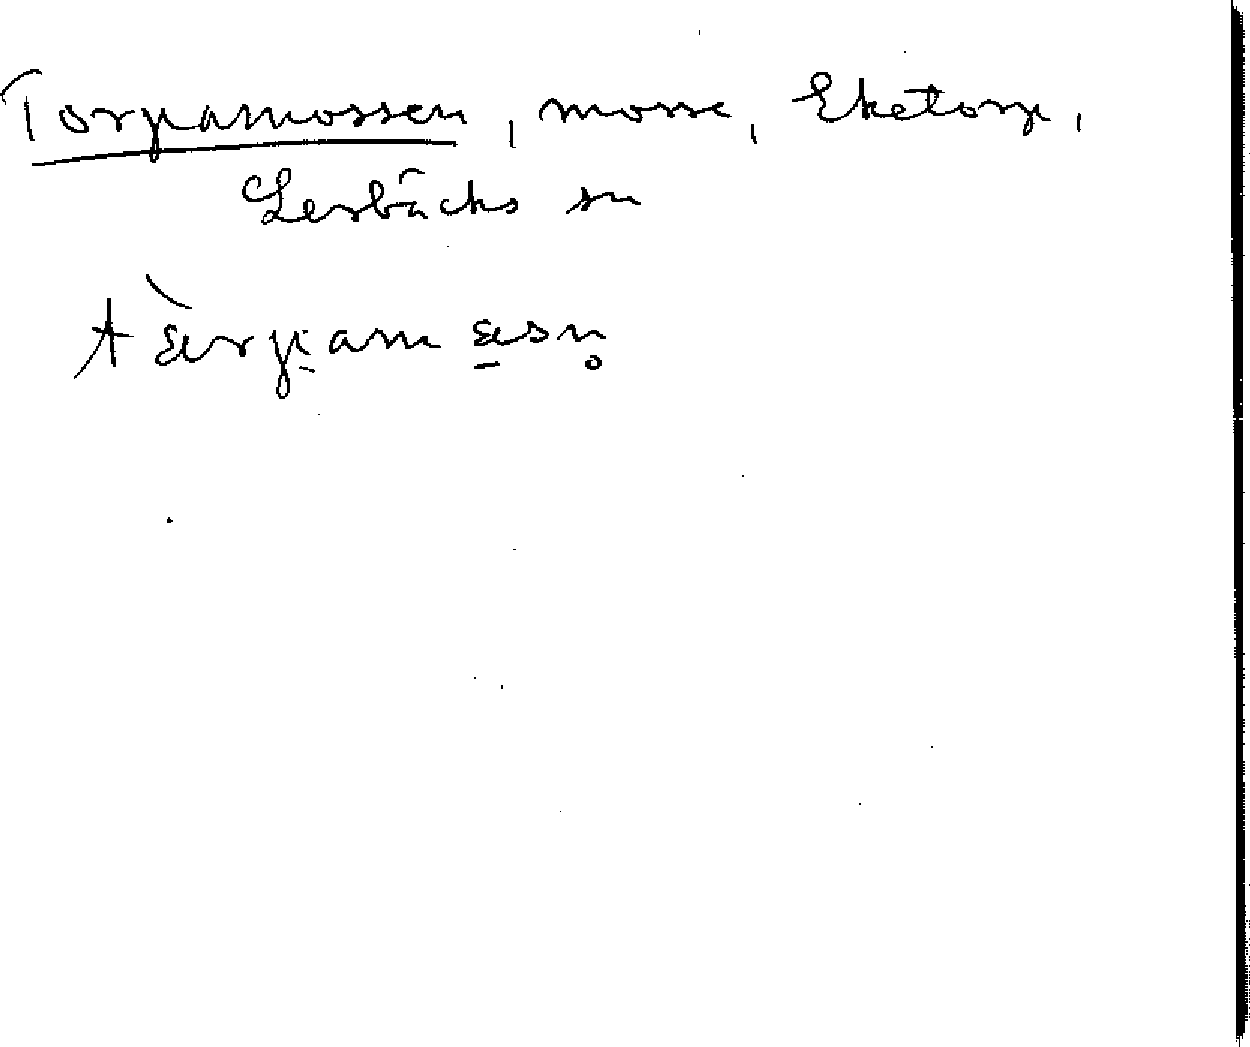 Torpamossen, mosse, Eketorp,
Lerbäcks sn